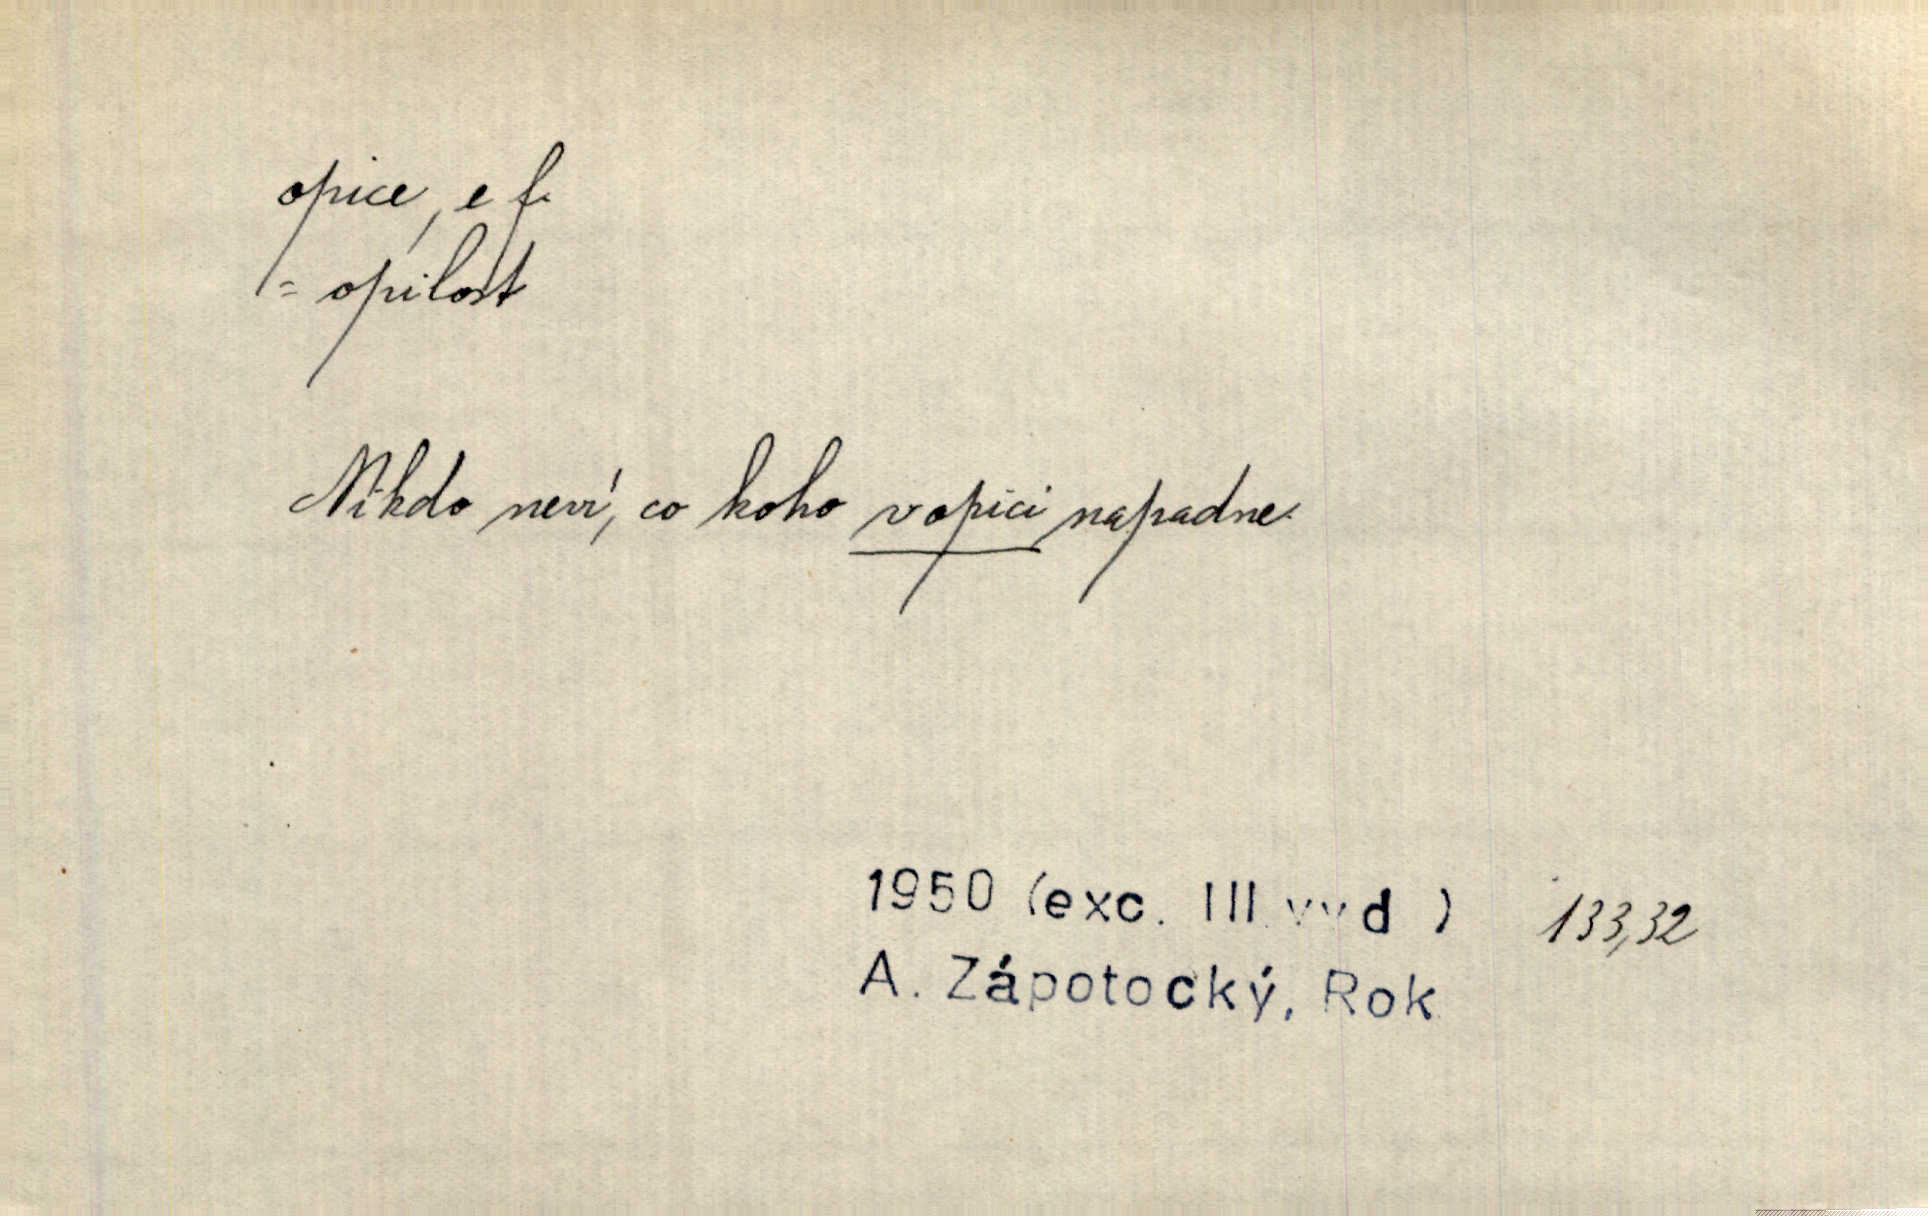 opice, e f.
= opilost
Nikdo neví, co koho v opici napadne.
1950 (exc. III. vyd ) 133,32
A. Zápotocký, Rok